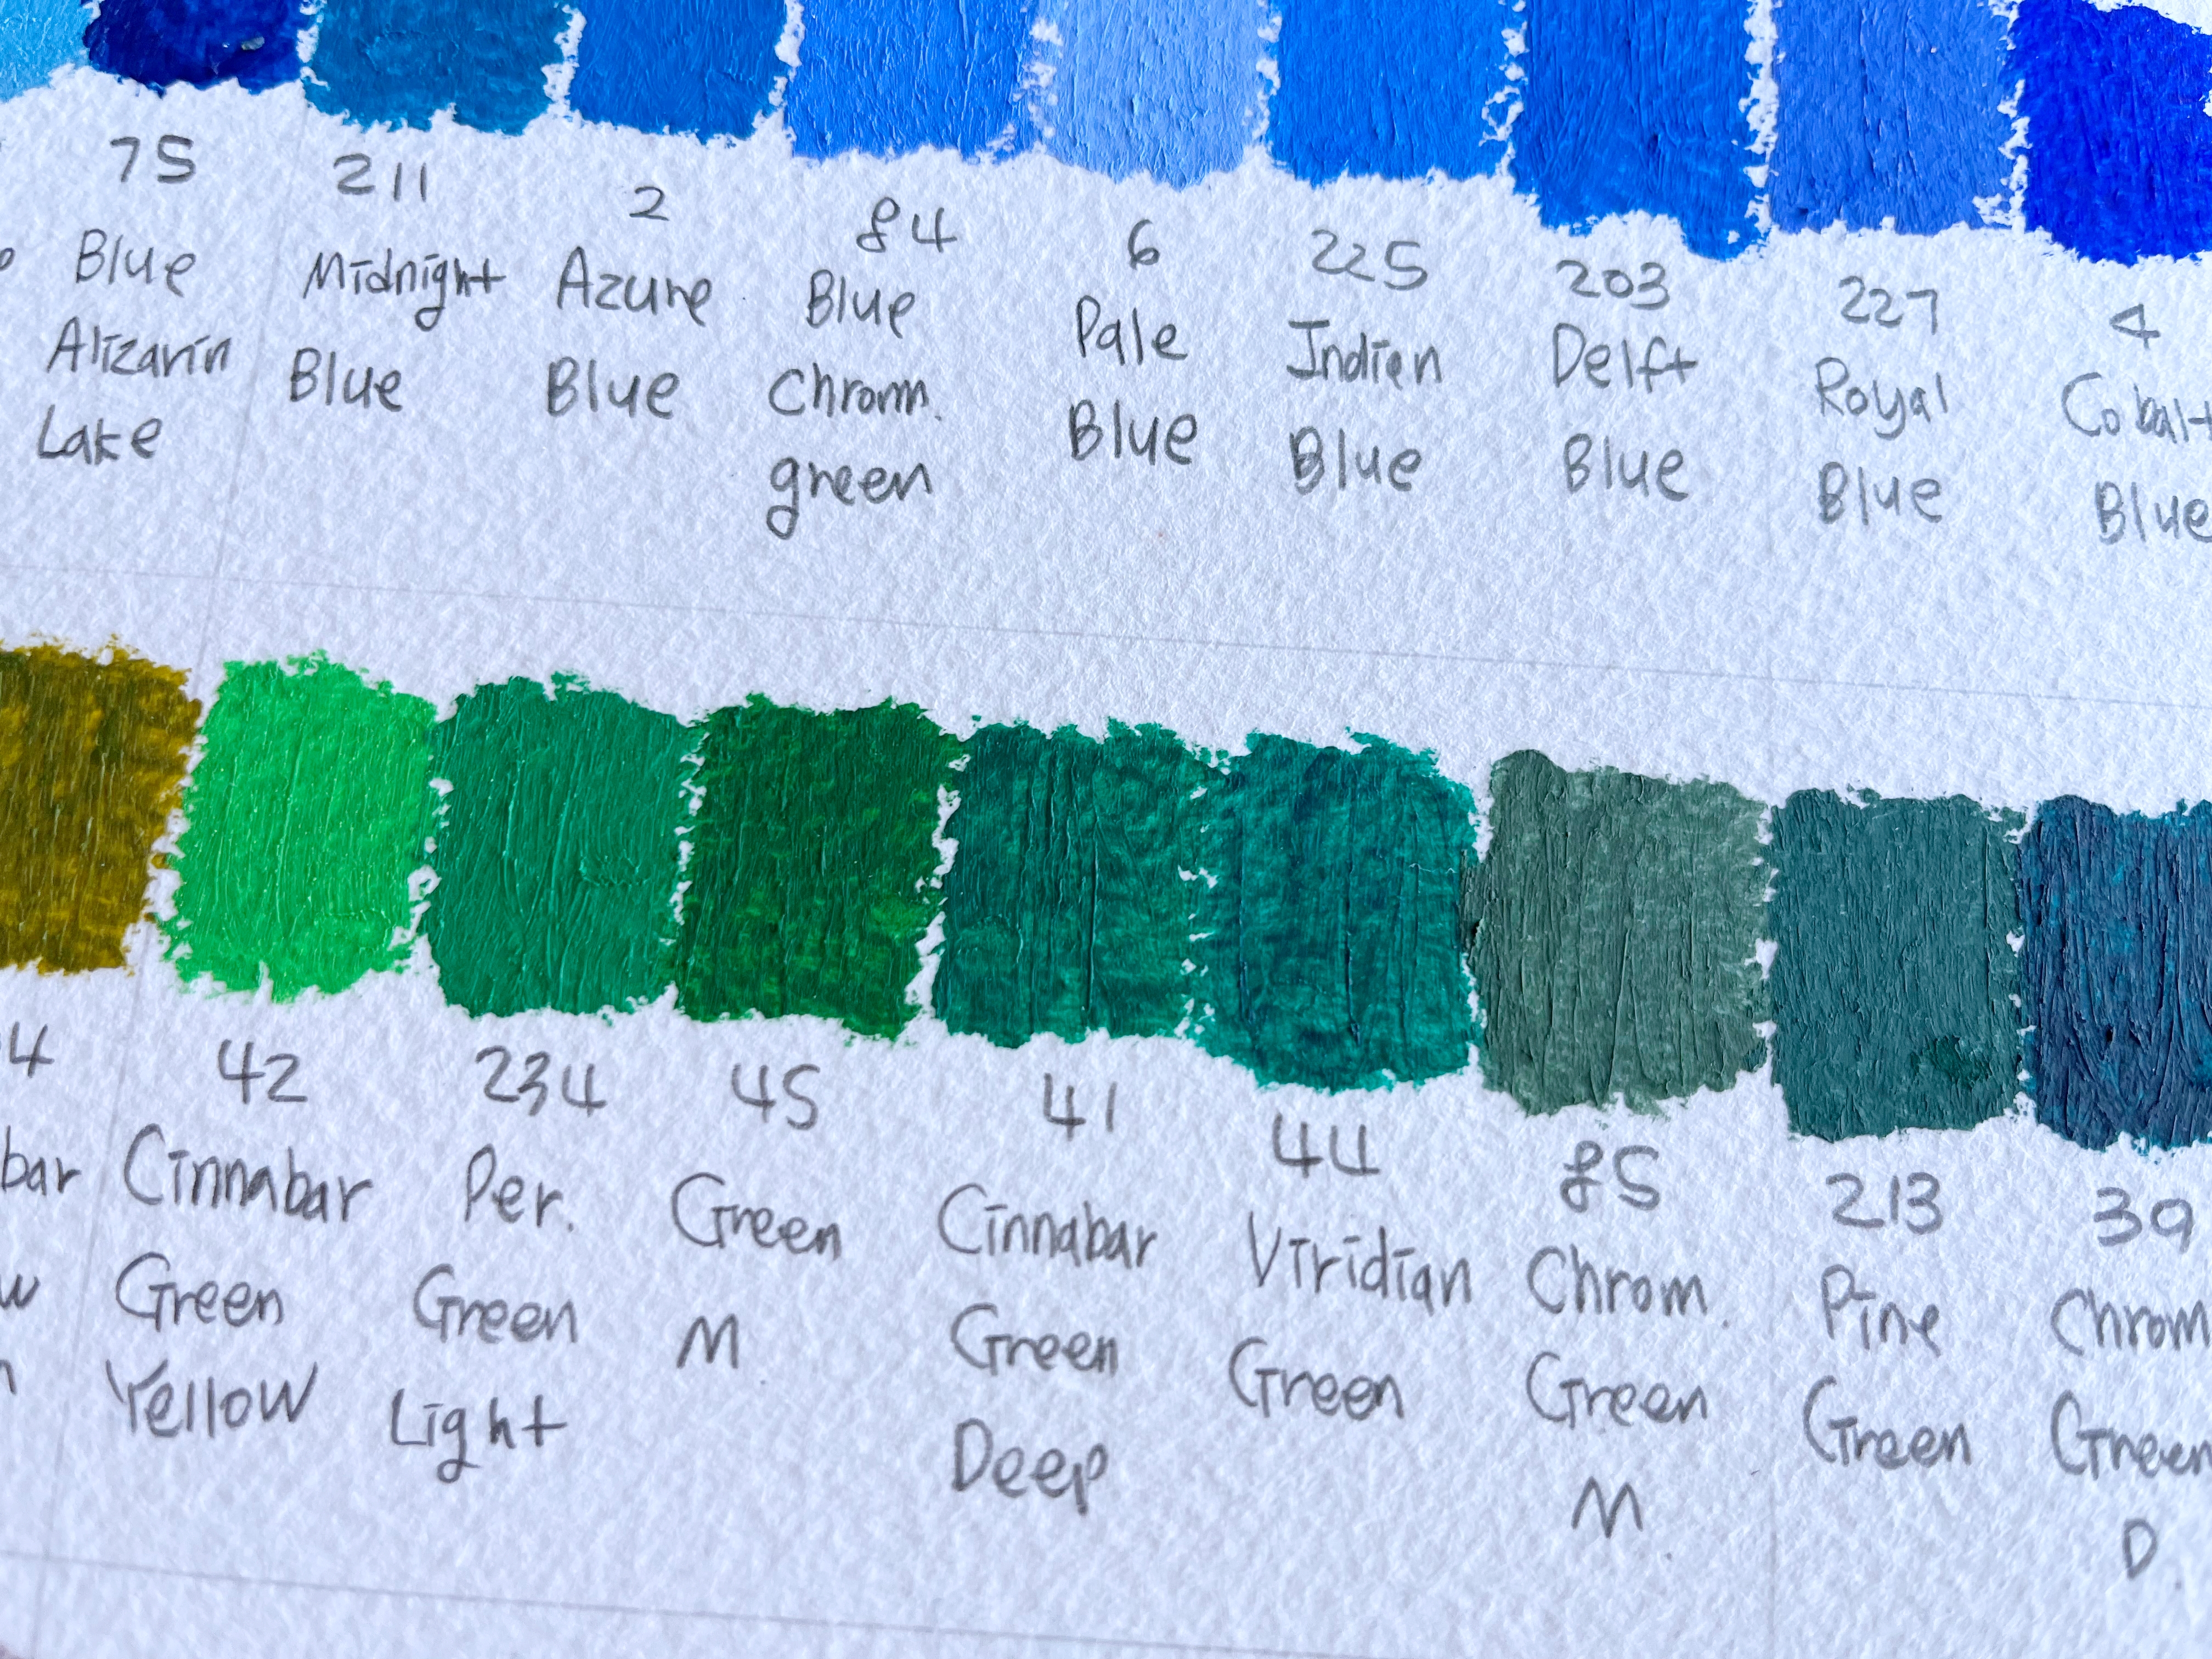 75
Blue
Alizarin
Lake
211
Midnight
Blue
2
Azure
Blue
84
Blue
Chrom.
green
6
Pale
Blue
225
Indian
Blue
203
Delft
Blue
227
Royal
Blue
4
Cobalt
Blue
4
bar
w
n
42
Cinnabar
Green
Yellow
234
Per.
Green
Light
45
Green
M
41
Cinnabar
Green
Deep
44
Viridian
Green
85
Chrom.
Green
M
213
Pine
Green
39
Chrom
Green
D.